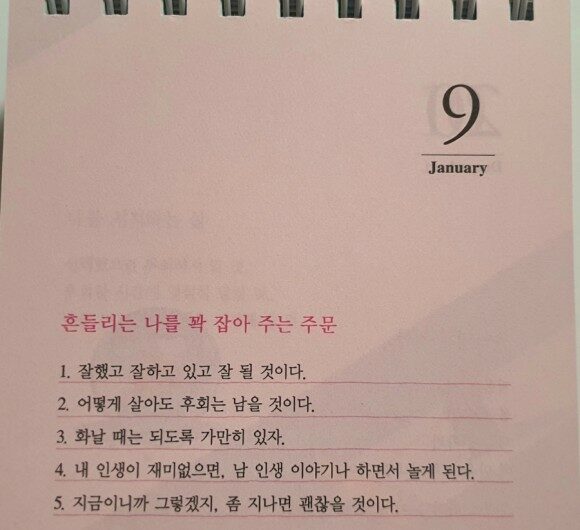 9
January
흔들리는 나를 꽉 잡아 주는 주문
1. 잘했고 잘하고 있고 잘 될 것이다.
2. 어떻게 살아도 후회는 남을 것이다.
3. 화날 때는 되도록 가만히 있자.
4. 내 인생이 재미없으면, 남 인생 이야기나 하면서 놀게 된다.
5. 지금이니까 그렇겠지, 좀 지나면 괜찮을 것이다.